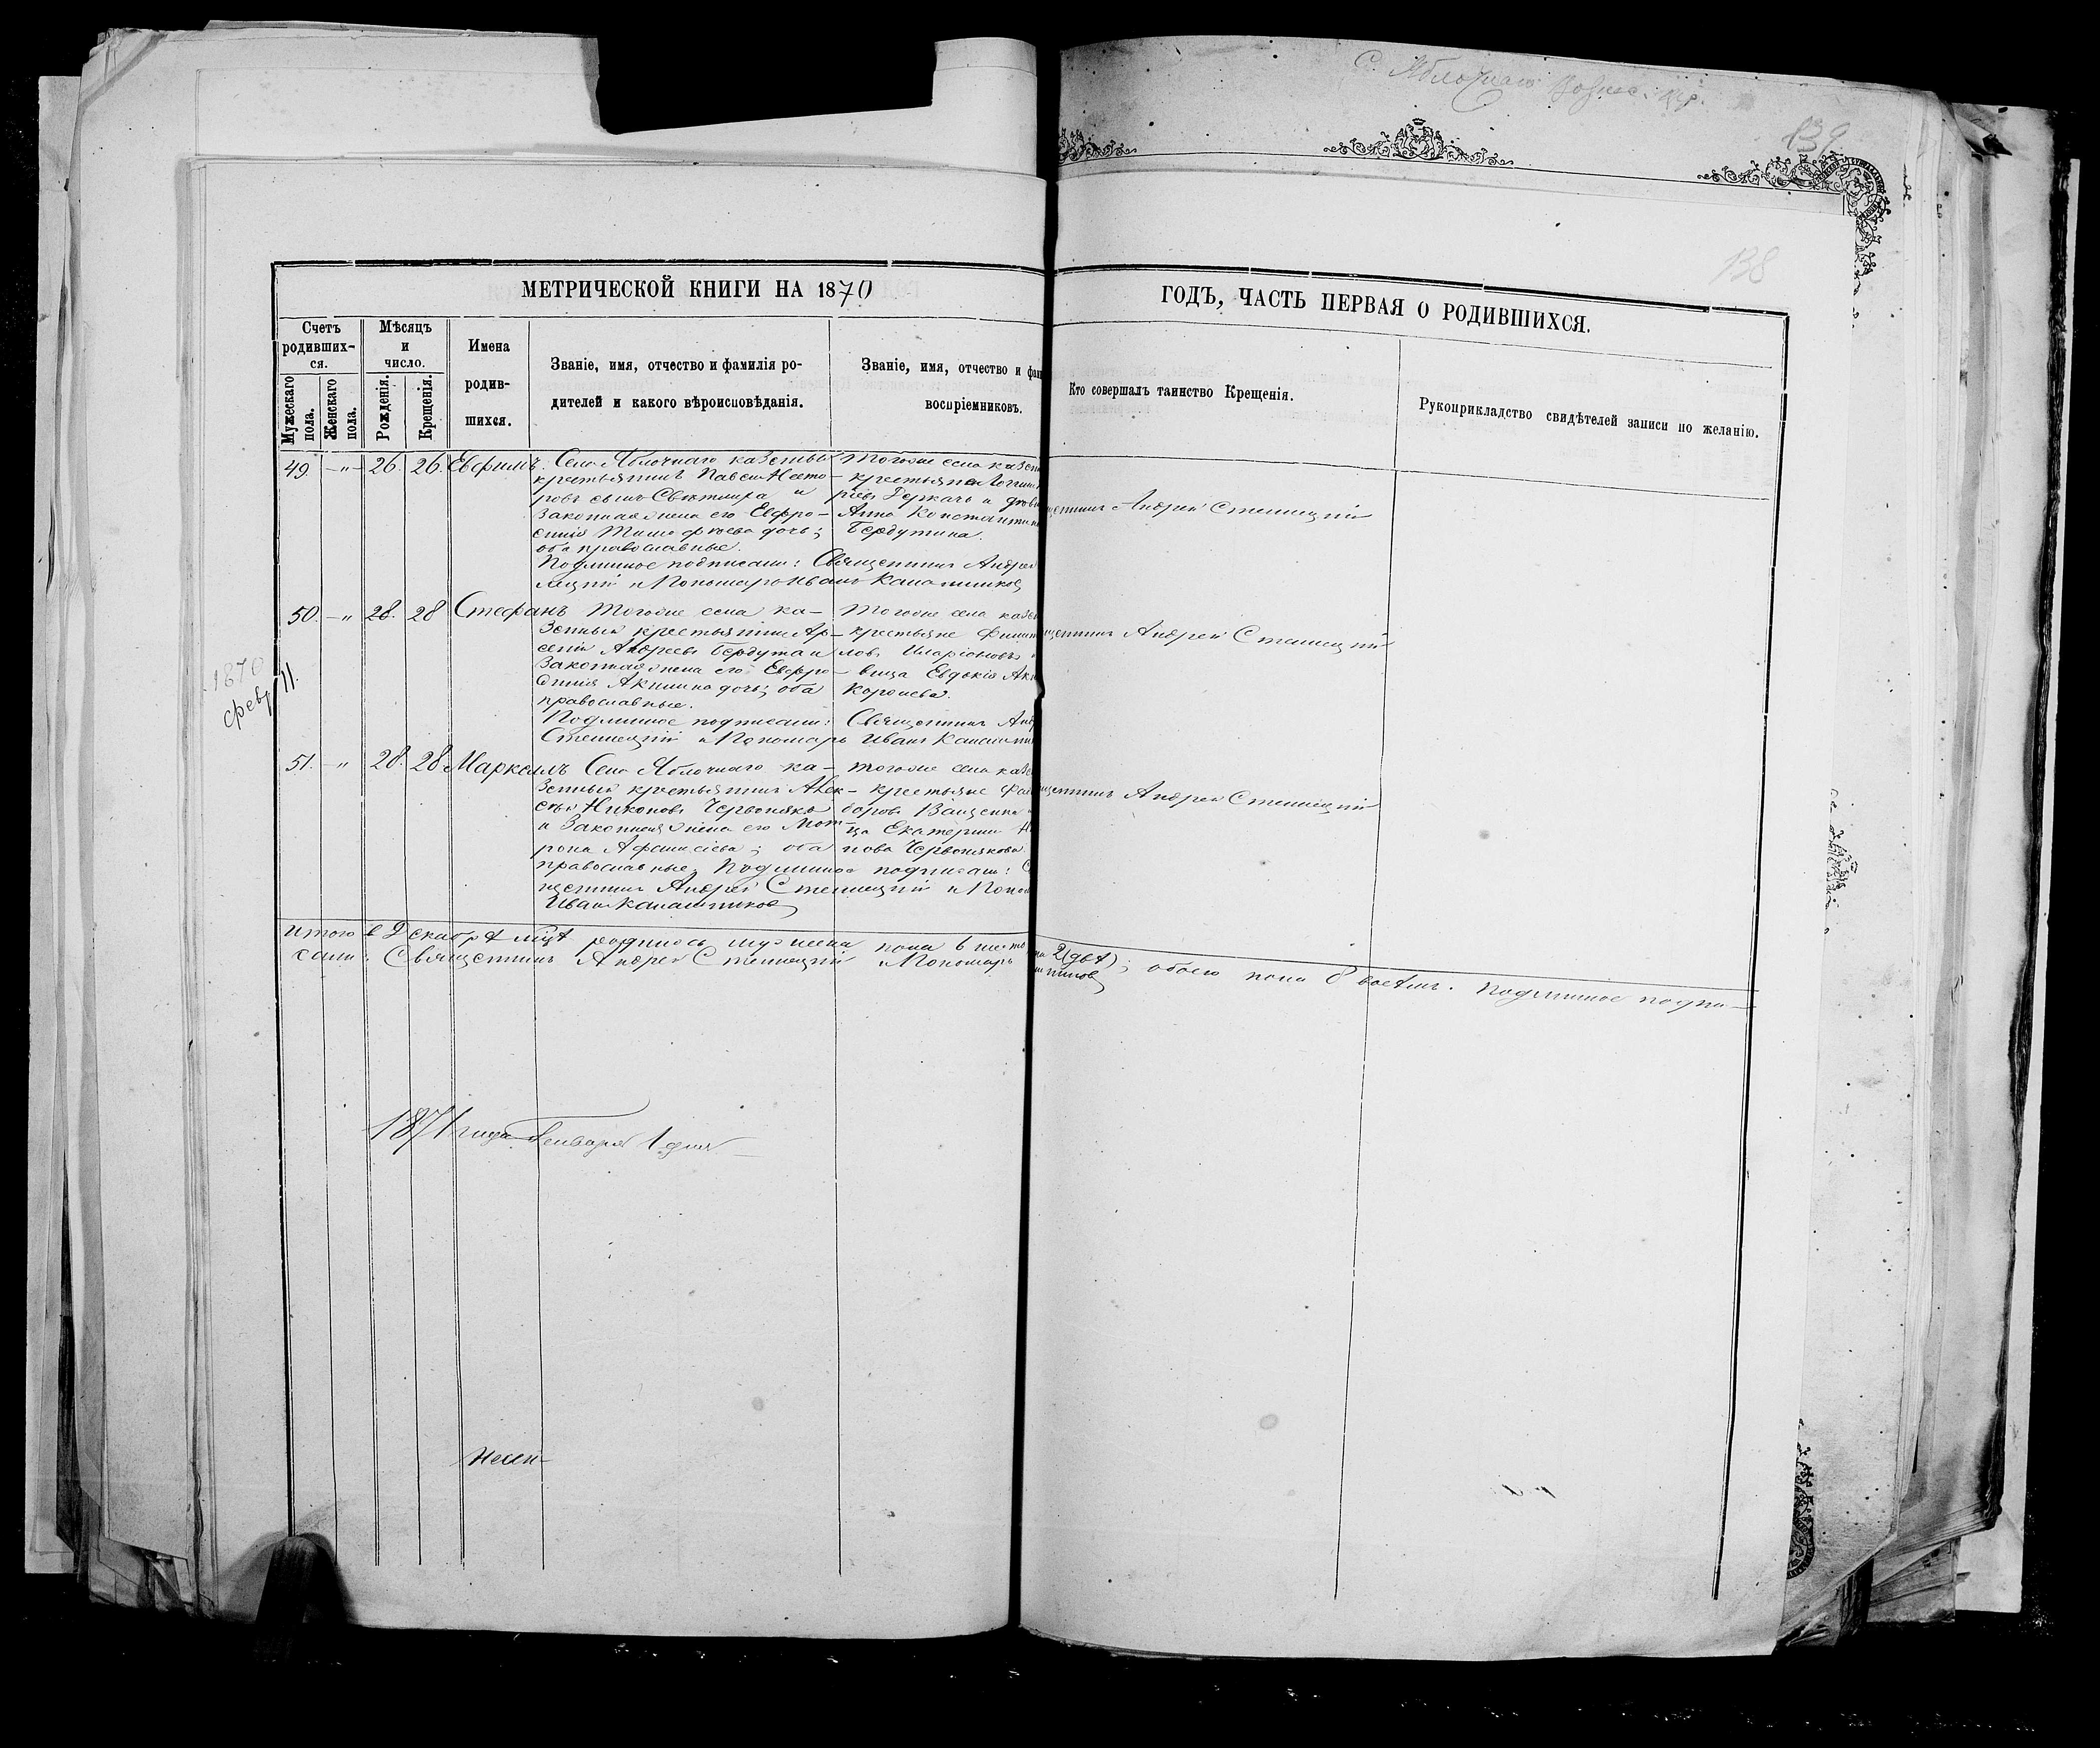 С. Яблочнаго Вознес. цер.
139
138
МЕТРИЧЕСКОЙ КНИГИ НА 1870
ГОДЪ, ЧАСТЬ ПЕРВАЯ О РОДИВШИХСЯ.
Счетъ родившихся.
Мужескаго пола.
Женскаго пола.
Мѣсяцъ и число.
Рожденія.
Крещенія.
Имена родившихся.
Званіе, имя, отчество и фамилія родителей и какого вѣроисповѣданія.
Званіе, имя, отчество и фам
воспріемниковъ.
Кто совершалъ таинство Крещенія.
Рукоприкладство свидѣтелей записи по желанію.
49. —„— 26. 26. Евфимъ.
Села Яблочнаго казенный
крестьянинъ Павелъ Несто-
ровъ сынъ и
законная жена его Евфро-
синія Тимофѣева дочь;
оба православные.
Подлинное подписали: Священникъ Андрей
лецкій и Пономарь Иванъ Калашников
Тогоже села казен
крестьяне
Деркачъ и
Анна Константин
Бердутина.
щенникъ Андрей Стеллецкій
50. —„ 28. 28 Стефанъ
Тогоже села ка-
зенный крестьянинъ Ар-
сеній Андреевъ Бердута и
законная жена его Евфро-
синія Акимина дочь; оба
православные.
Подлинное подписали: Священникъ Анд
Стеллецкій и Пономарь Иванъ Калашни
Тогоже села казен
крестьяне Филип
повъ Иларіоновъ
вица Евдокія Аки
Королева.
щенникъ Андрей Стеллецкій
1870
февр 11.
51. —„ 28. 28. Маркеллъ
Села Яблочнаго ка-
зенный крестьянинъ Алек-
сѣй Никоновъ Червоняко
и законная жена его Мат-
рона Афанасіева; оба
православные. Подлинное подписали: С
щенникъ Андрей Стеллецкій и Поном
Иванъ Калашников
тогоже села казе
крестьяне
доровъ Ващенко
ца Екатерина Н
нова Червонякова.
щенникъ Андрей Стеллецкій
Итого в Декабрѣ мцѣ родилось мужеска пола 6 шесть
на 2 (двѣ); обоего пола 8 восемь. Подлинное подпи-
сали: Священникъ Андрей Стеллецкій и Пономарь
шников
1871 года Генваря 1 дня